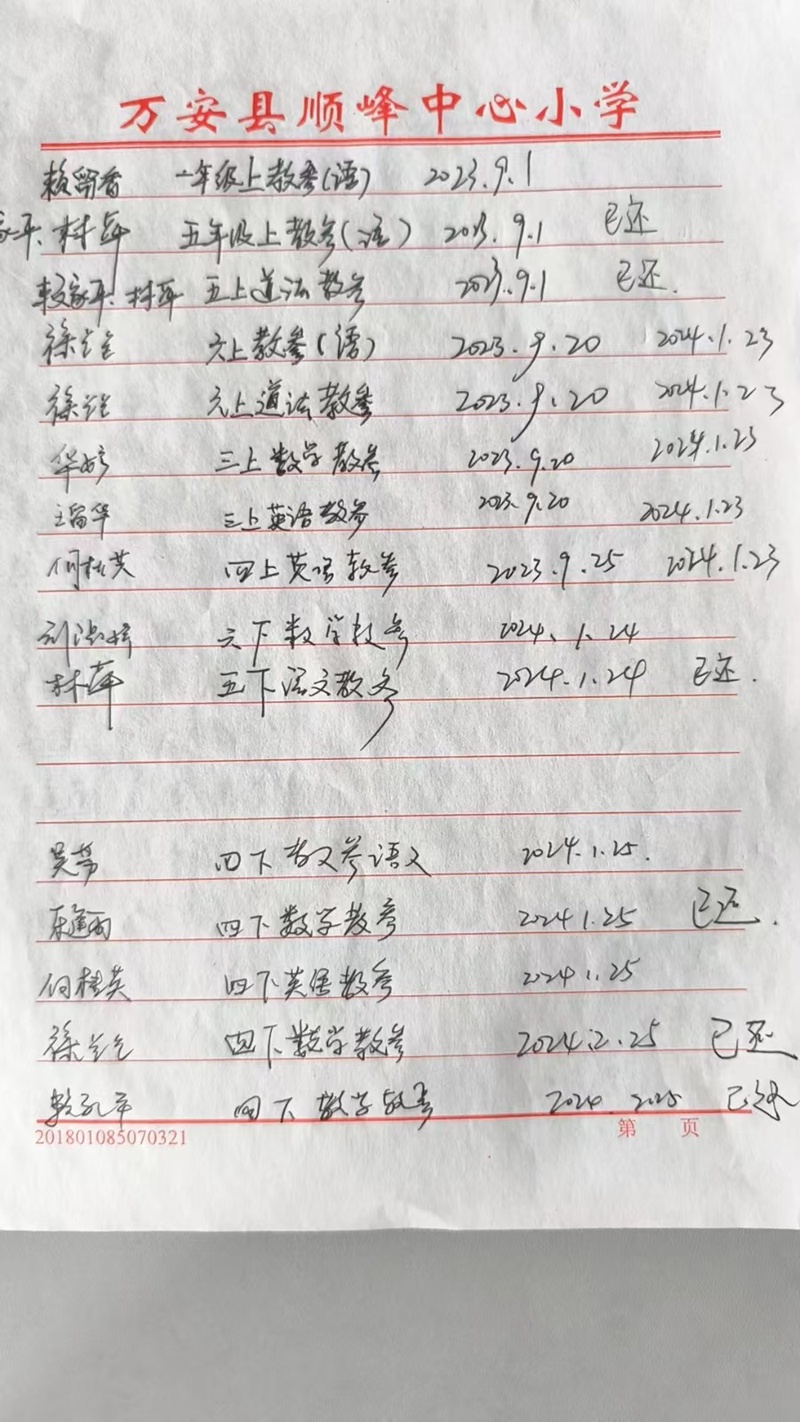 万安县顺峰中心小学
赖留香 一年级上教参(语) 2023.9.1
平、林萍 五年级上教参(语) 2023.9.1 已还
赖家平、林萍 五上道法教参 2023.9.1 已还.
徐 六上教参(语) 2023.9.20 2024.1.23
徐 六上道法教参 2023.9.20 2024.1.23
华婷 三上数学教参 2023.9.20 2024.1.23
王留华 三上英语教参 2023.9.20 2024.1.23
何桂英 四上英语教参 2023.9.25 2024.1.23
刘 六下数学教参 2024.1.24
林萍 五下语文教参 2024.1.24 已还.
吴 四下教参语文 2024.1.25.
四下数学教参 2024.1.25 已还.
何桂英 四下英语教参 2024.1.25
徐 四下数学教参 2024.2.25 已还
四下数学教参 2024. 2025 已还
201801085070321 第 页